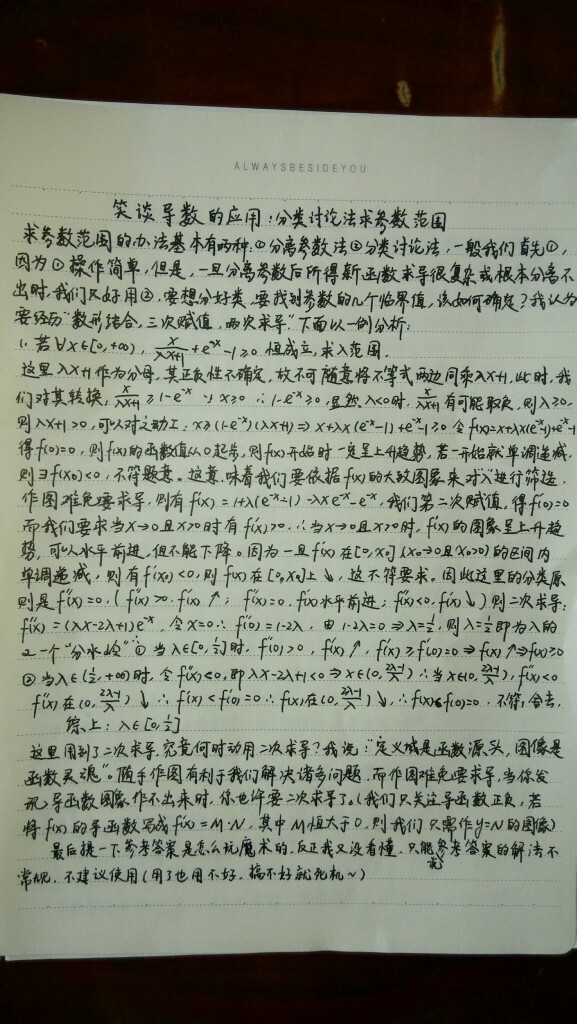 ALWAYSBESIDEYOU
笑谈导数的应用:分类讨论法求参数范围
求参数范围的办法基本有两种,①分离参数法②分类讨论法,一般我们首先①,
因为①操作简单,但是,一旦分离参数后所得新函数求导很复杂或根本分离不
出时,我们只好用②,要想分好类,要找到参数的几个临界值,该如何确定?我认为
要经历"数形结合,三次赋值,两次求导".下面以一例分析:
1. 若∀x∈[0,+∞), x/(λx+1)+e^-x-1≥0 恒成立,求λ范围.
这里λx+1作为分母,其正负性不确定,故不可随意将不等式两边同乘λx+1,此时,我
们对其转换, x/(λx+1)≥1-e^-x ∵x≥0 ∴1-e^-x≥0,显然λ<0时, x/(λx+1)有可能取负,则λ≥0,
则λx+1>0,可以对之动工:x≥(1-e^-x)(λx+1)⇒x+λx(e^-x-1)+e^-x-1≥0 令f(x)=x+λx(e^-x-1)+e^-x-1
得f(0)=0,则f(x)的函数值从0起步,则f(x)开始时一定呈上升趋势,若一开始就单调递减,
则∃f(x₀)<0,不符题意。这意味着我们要依据f(x)的大致图象来对"λ"进行筛选,
作图难免要求导,则有f'(x)=1+λ(e^-x-1)-λxe^-x-e^-x,我们第二次赋值,得f'(0)=0
而我们要求当x→0且x>0时有f'(x)>0,∴当x→0且x>0时,f'(x)的图象呈上升趋
势,可以水平前进,但不能下降。因为一旦f'(x)在[0,x₀](x₀→0且x₀>0)的区间内
单调递减,则有f'(x₀)<0,则f(x)在[0,x₀]上↘,这不符要求。因此这里的分类原
则是f''(x)=0.(f''(x)>0,f'(x)↑;f''(x)=0,f'(x)水平前进;f''(x)<0,f'(x)↘)则二次求导:
f''(x)=(λx-2λ+1)e^-x,令x=0∴f''(0)=1-2λ,由1-2λ=0⇒λ=1/2,则λ=1/2即为λ的
一个"分水岭"①当λ∈[0,1/2]时,f''(0)>0,f'(x)↑,f'(x)≥f'(0)=0⇒f(x)↑⇒f(x)≥0
②当λ∈(1/2,+∞)时,令f''(x)<0,即λx-2λ+1<0⇒x∈(0,(2λ-1)/λ)∴当x∈(0,(2λ-1)/λ),f''(x)<0
f'(x)在(0,(2λ-1)/λ)↘∴f'(x)<f'(0)=0∴f(x)在(0,(2λ-1)/λ)↘,∴f(x)≤f(0)=0,不符,舍去,
综上:λ∈[0,1/2]
这里用到了二次求导,究竟何时动用二次求导?我说:"定义域是函数源头,图像是
函数灵魂"。随手作图有利于我们解决诸多问题,而作图难免要求导,当你发
现导函数图象作不出来时,你也许要二次求导了。(我们只关注导函数正负,若
将f(x)的导函数写成f'(x)=M·N,其中M恒大于0,则我们只需作y=N的图像)
最后提一下参考答案是怎么玩魔术的,反正我又没看懂,只能说参考答案的解法不
常规,不建议使用(用了也用不好,搞不好就死机~)